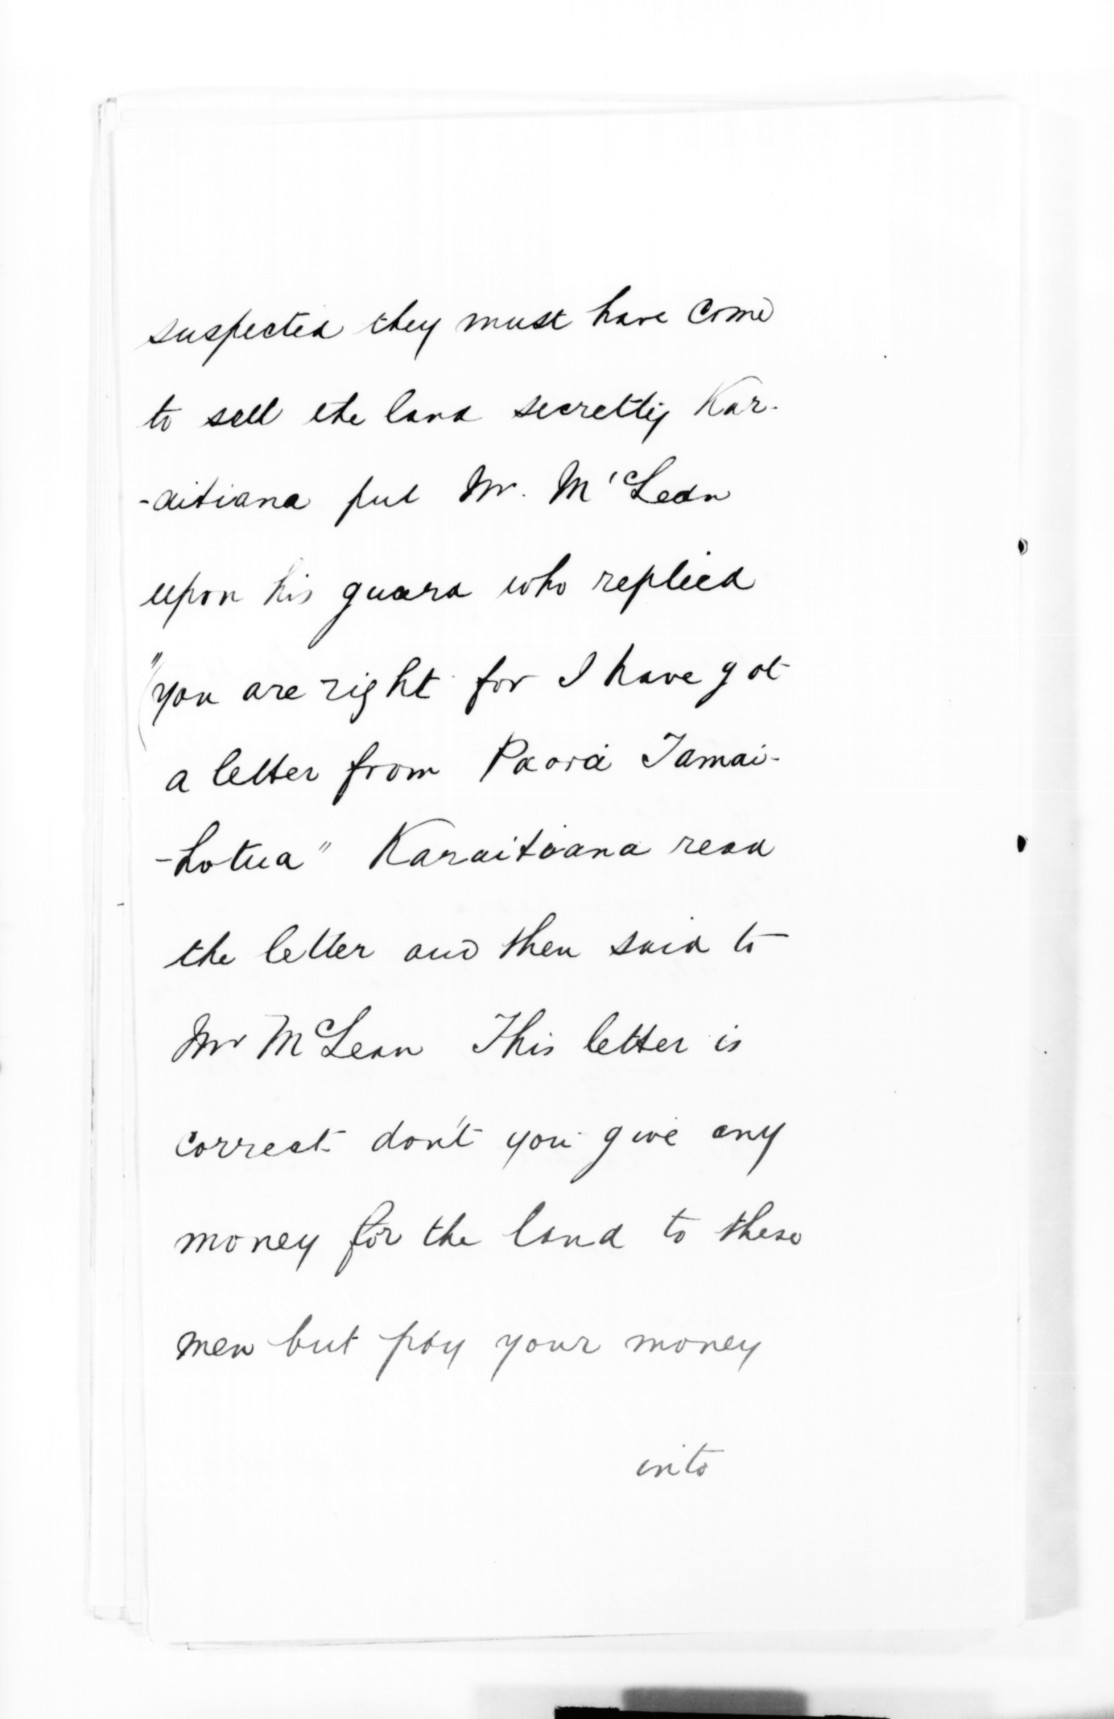 suspected they must have come
to sell the land secretly Kar-
-aitiana put Mr. McLean
upon his guard who replied
"you are right for I have got
a letter from Paora Tamai-
-hotua" Karaitiana read
the letter and then said to
Mr McLean This letter is
correct don't you give any
money for the land to these
men but pay your money
into